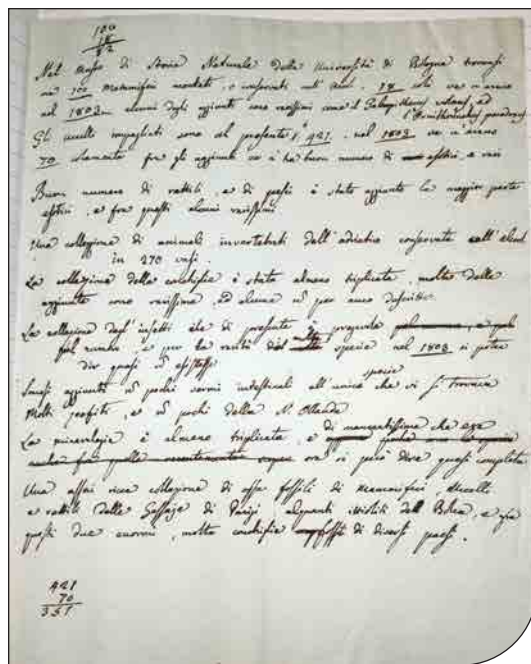 100
18
82
Nel Museo di Storia Naturale della Università di Bologna trovansi
ne 100 Mammiferi montati, o conservati nell' 18 soli ve n'erano
nel 1803 alcuni degli aggiunti sono rarissimi come il Galeopithecus volans, ed
l'Ornithorincus paradoxus
Gli uccelli impagliati sono al presente 421. nel 1803 ve n'erano
70 solamente fra gli aggiunti ve n'ha buon numero di esotici, e rari
Buon numero di rettili, e di pesci è stato aggiunto la maggior parte
esotici, e fra questi alcuni rarissimi
Una collezione di animali invertebrati dell'adriatico conservata nell'
in 270 vasi.
La collezione delle conchiglie è stata almeno triplicata, molte delle
aggiunte sono rarissime, ed alcune nè per anco definite.
La collezione degl'insetti che di presente è
numero, e per la rarità specie nel 1803 si potea
dir quasi nè esistesse
aggiunti nè pochi vermi intestinali all'unica specie che vi si trovava
Molti zoofiti, e nè pochi della N. Ollanda
La mineralogia è almeno triplicata, e di mancantissima che era
ora si può dire quasi completa
Una assai ricca collezione di ossa fossili di Mammiferi, Uccelli
e rettili delle di Parigi, alquanti Ittioliti del Bolca, e
questi due, molte conchiglie fossili di diversi paesi.
421
70
351